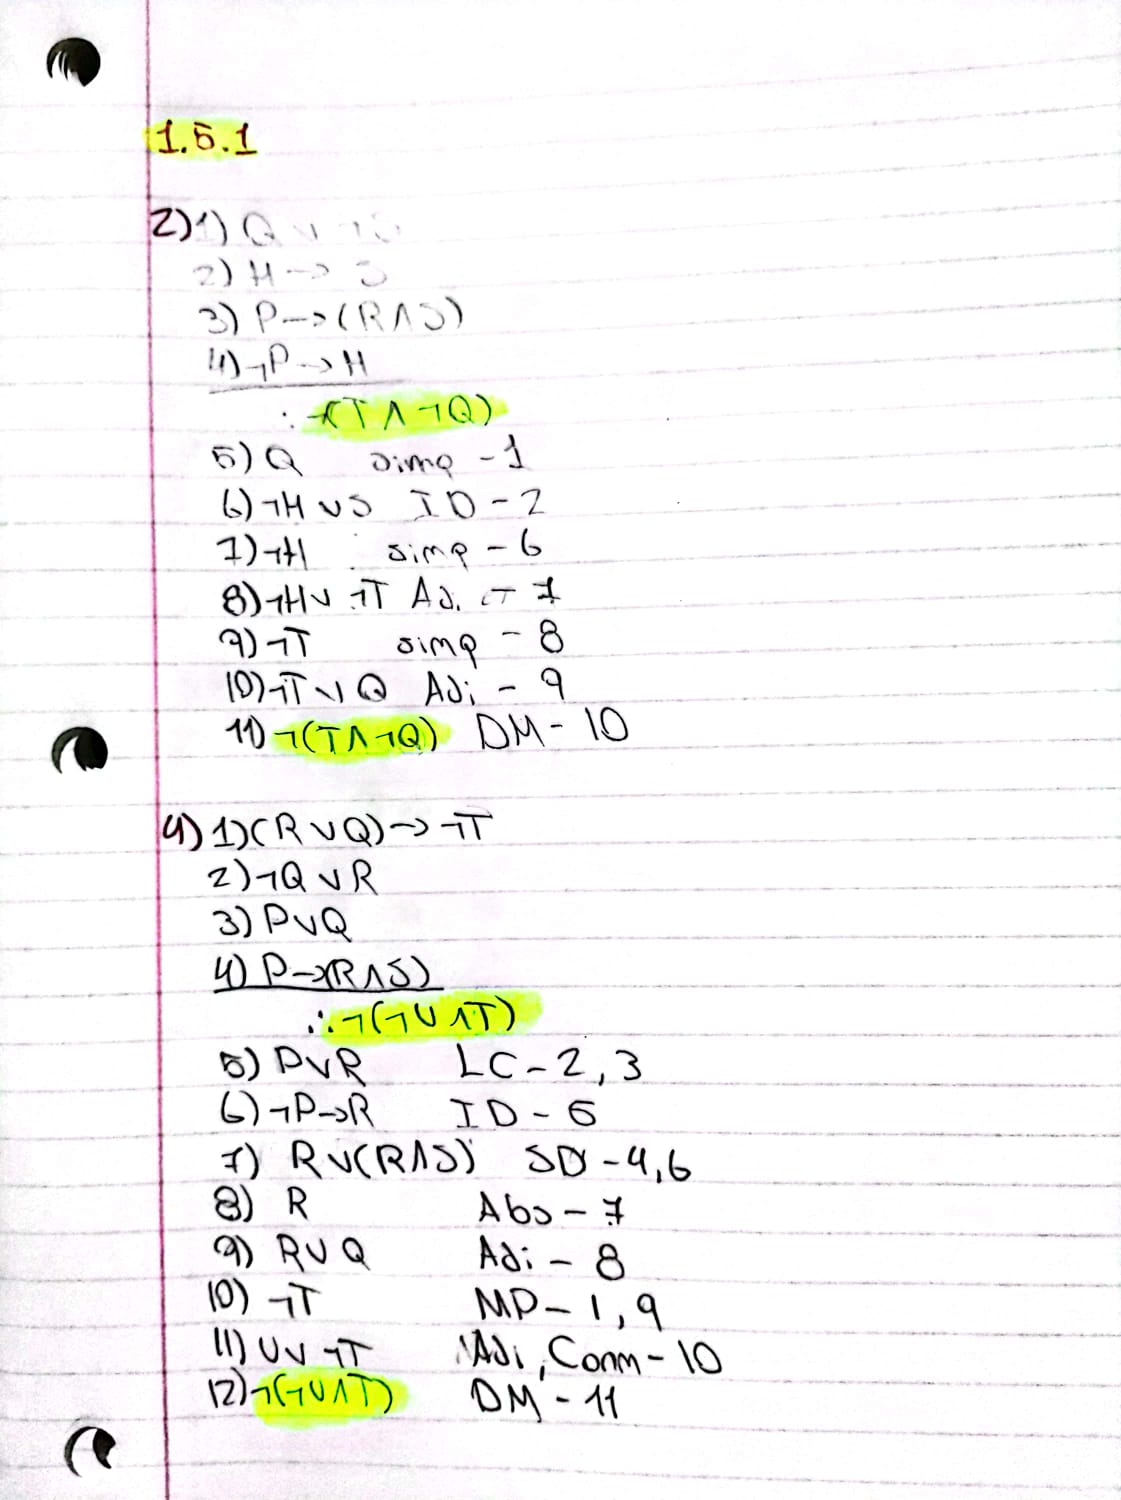 1.5.1
2) 1) Q ∨
2) H → S
3) P → (R ∧ S)
4) ¬P → H
∴ ¬(T ∧ ¬Q)
5) Q simp - 1
6) ¬H ∨ S ID - 2
7) ¬H simp - 6
8) ¬H ∨ ¬T Adi - 7
9) ¬T simp - 8
10) ¬T ∨ Q Adi - 9
11) ¬(T ∧ ¬Q) DM - 10
4) 1) (R ∨ Q) → ¬T
2) ¬Q ∨ R
3) P ∨ Q
4) P → (R ∧ S)
∴ ¬(¬U ∧ T)
5) P ∨ R LC - 2, 3
6) ¬P → R ID - 5
7) R ∨ (R ∧ S) SD - 4, 6
8) R Abs - 7
9) R ∨ Q Adi - 8
10) ¬T MP - 1, 9
11) U ∨ ¬T Adi, Conm - 10
12) ¬(¬U ∧ T) DM - 11